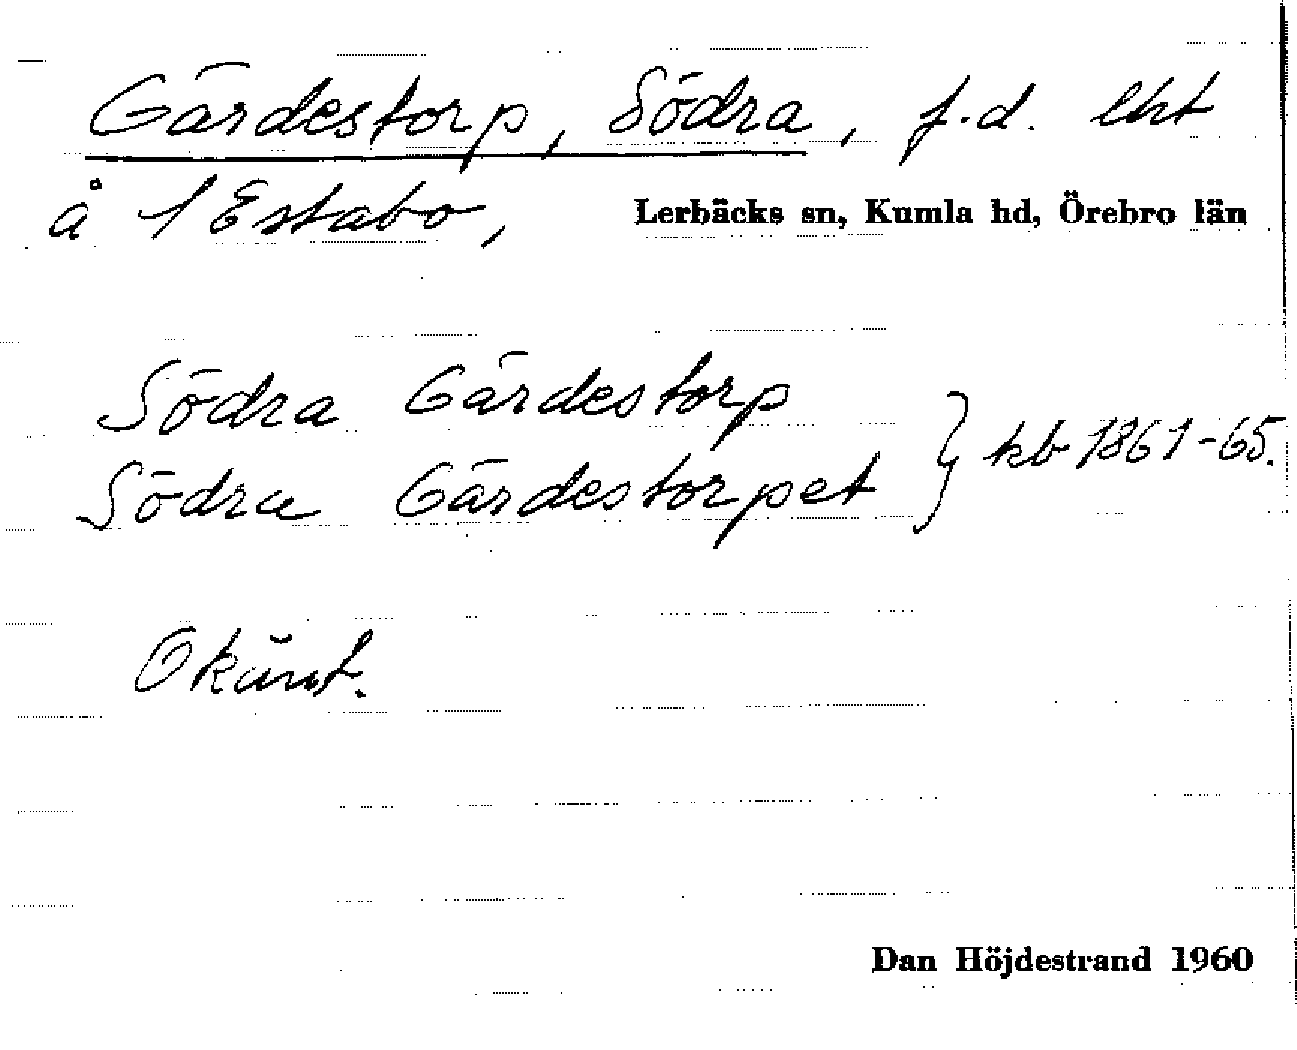 Gärdestorp, Södra, f.d. lht
å 1 Estabo, Lerbäcks sn, Kumla hd, Örebro län
Södra Gärdestorp
Södra Gärdestorpet } kb 1861-65.
Okänt.
Dan Höjdestrand 1960